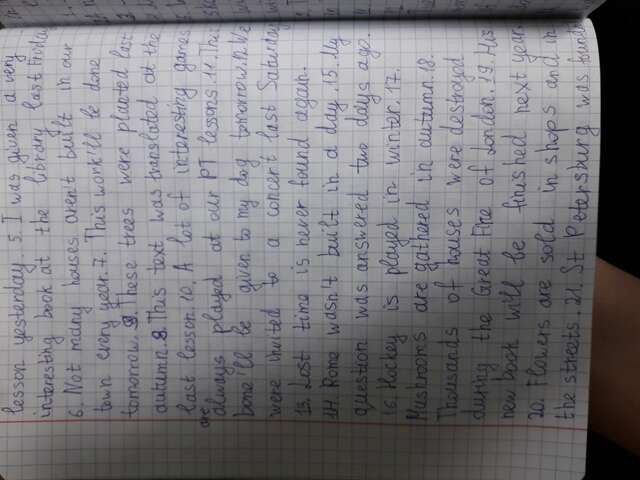 lesson yesterday. 5. I was given a very
interesting book at the library last Friday
6. Not many houses aren't built in our
town every year. 7. This work'll be done
tomorrow. 8. These trees were planted last
autumn. 9. This text was translated at the
last lesson. 10. A lot of interesting games
are
always played at our PT lessons. 11. This
bone'll be given to my dog tomorrow. 12. We
were invited to a concert last Saturday
13. Lost time is never found again.
14. Rome wasn't built in a day. 15. My
question was answered two days ago.
16. Hockey is played in winter. 17.
Mushrooms are gathered in autumn. 18.
Thousands of houses were destroyed
during the Great Fire of London. 19. His
new book will be finished next year.
20. Flowers are sold in shops and in
the streets. 21. St Petersburg was found